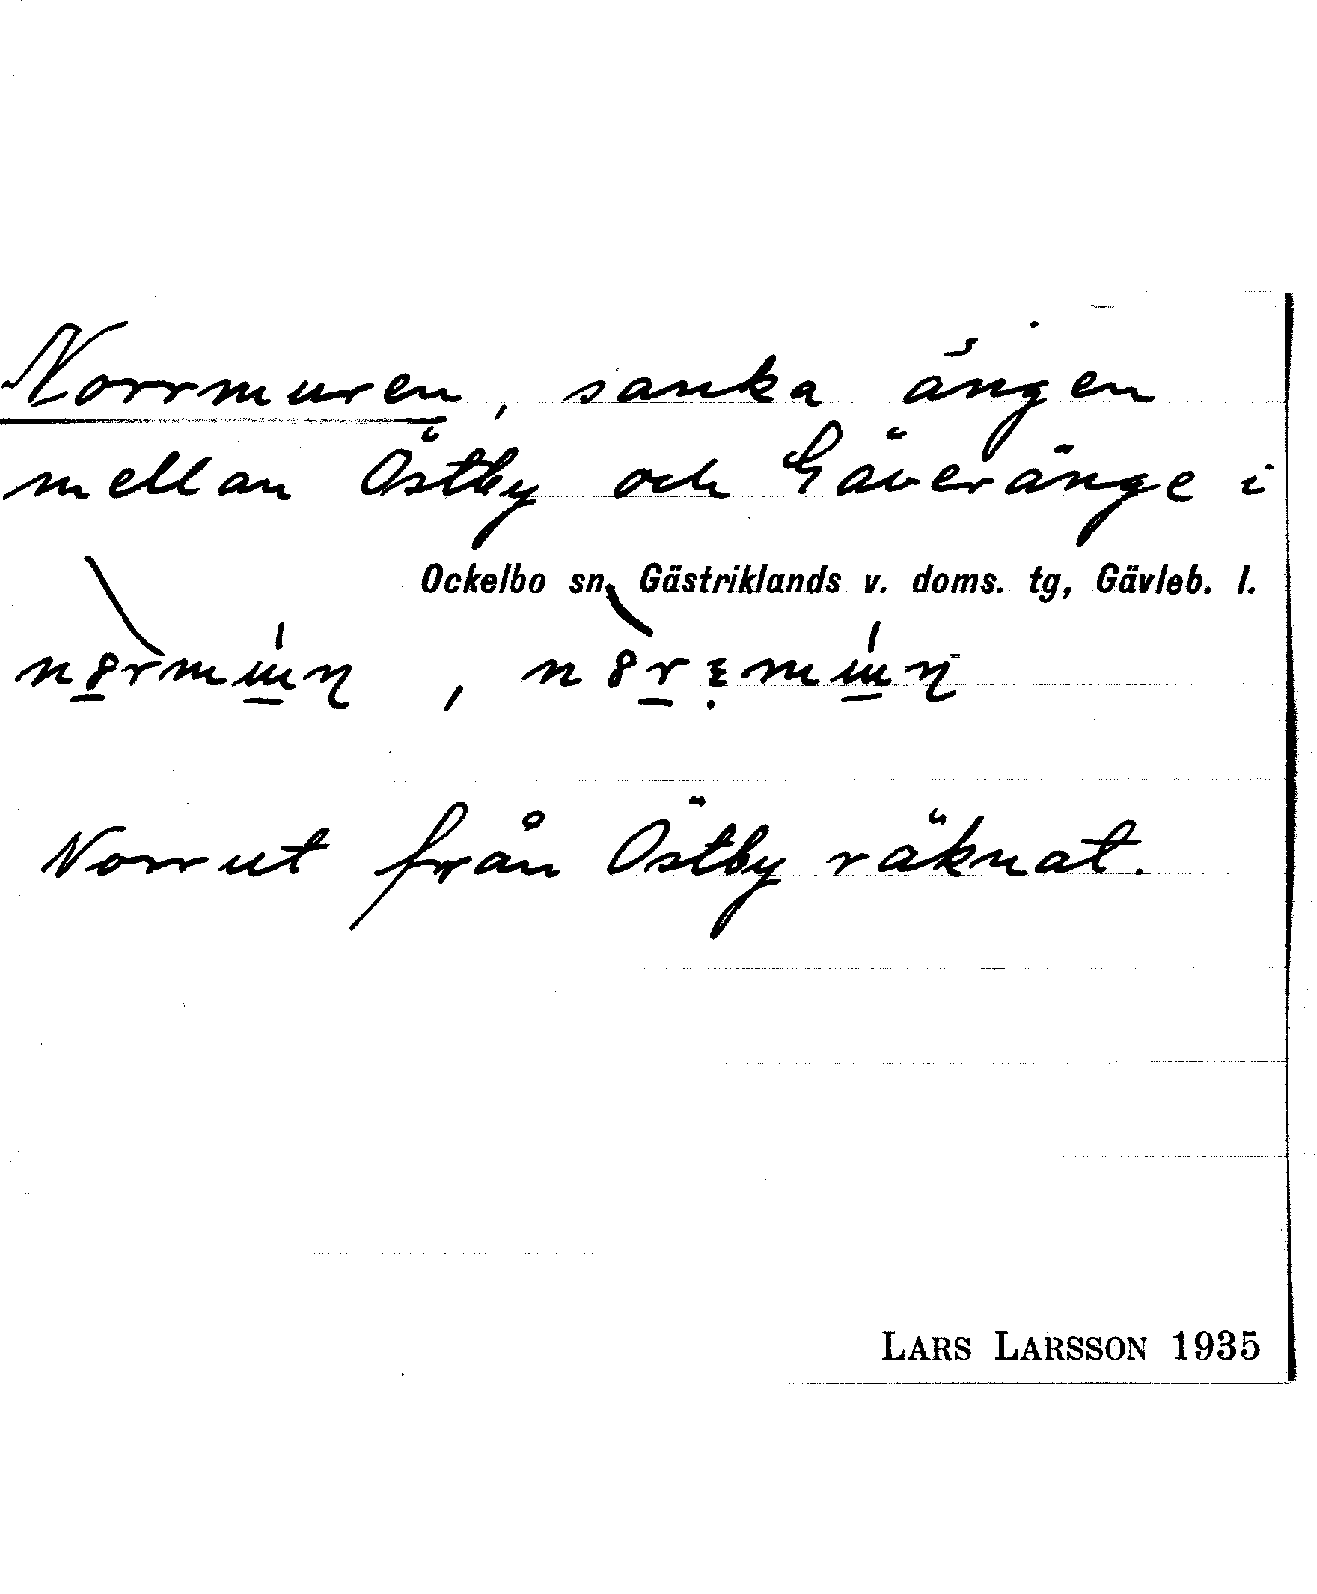 Norrmuren, sanka ängen
mellan Östby och Gäveränge i
Ockelbo sn, Gästriklands v. doms. tg, Gävleb. l.
Norrut från Östby räknat.
LARS LARSSON 1935